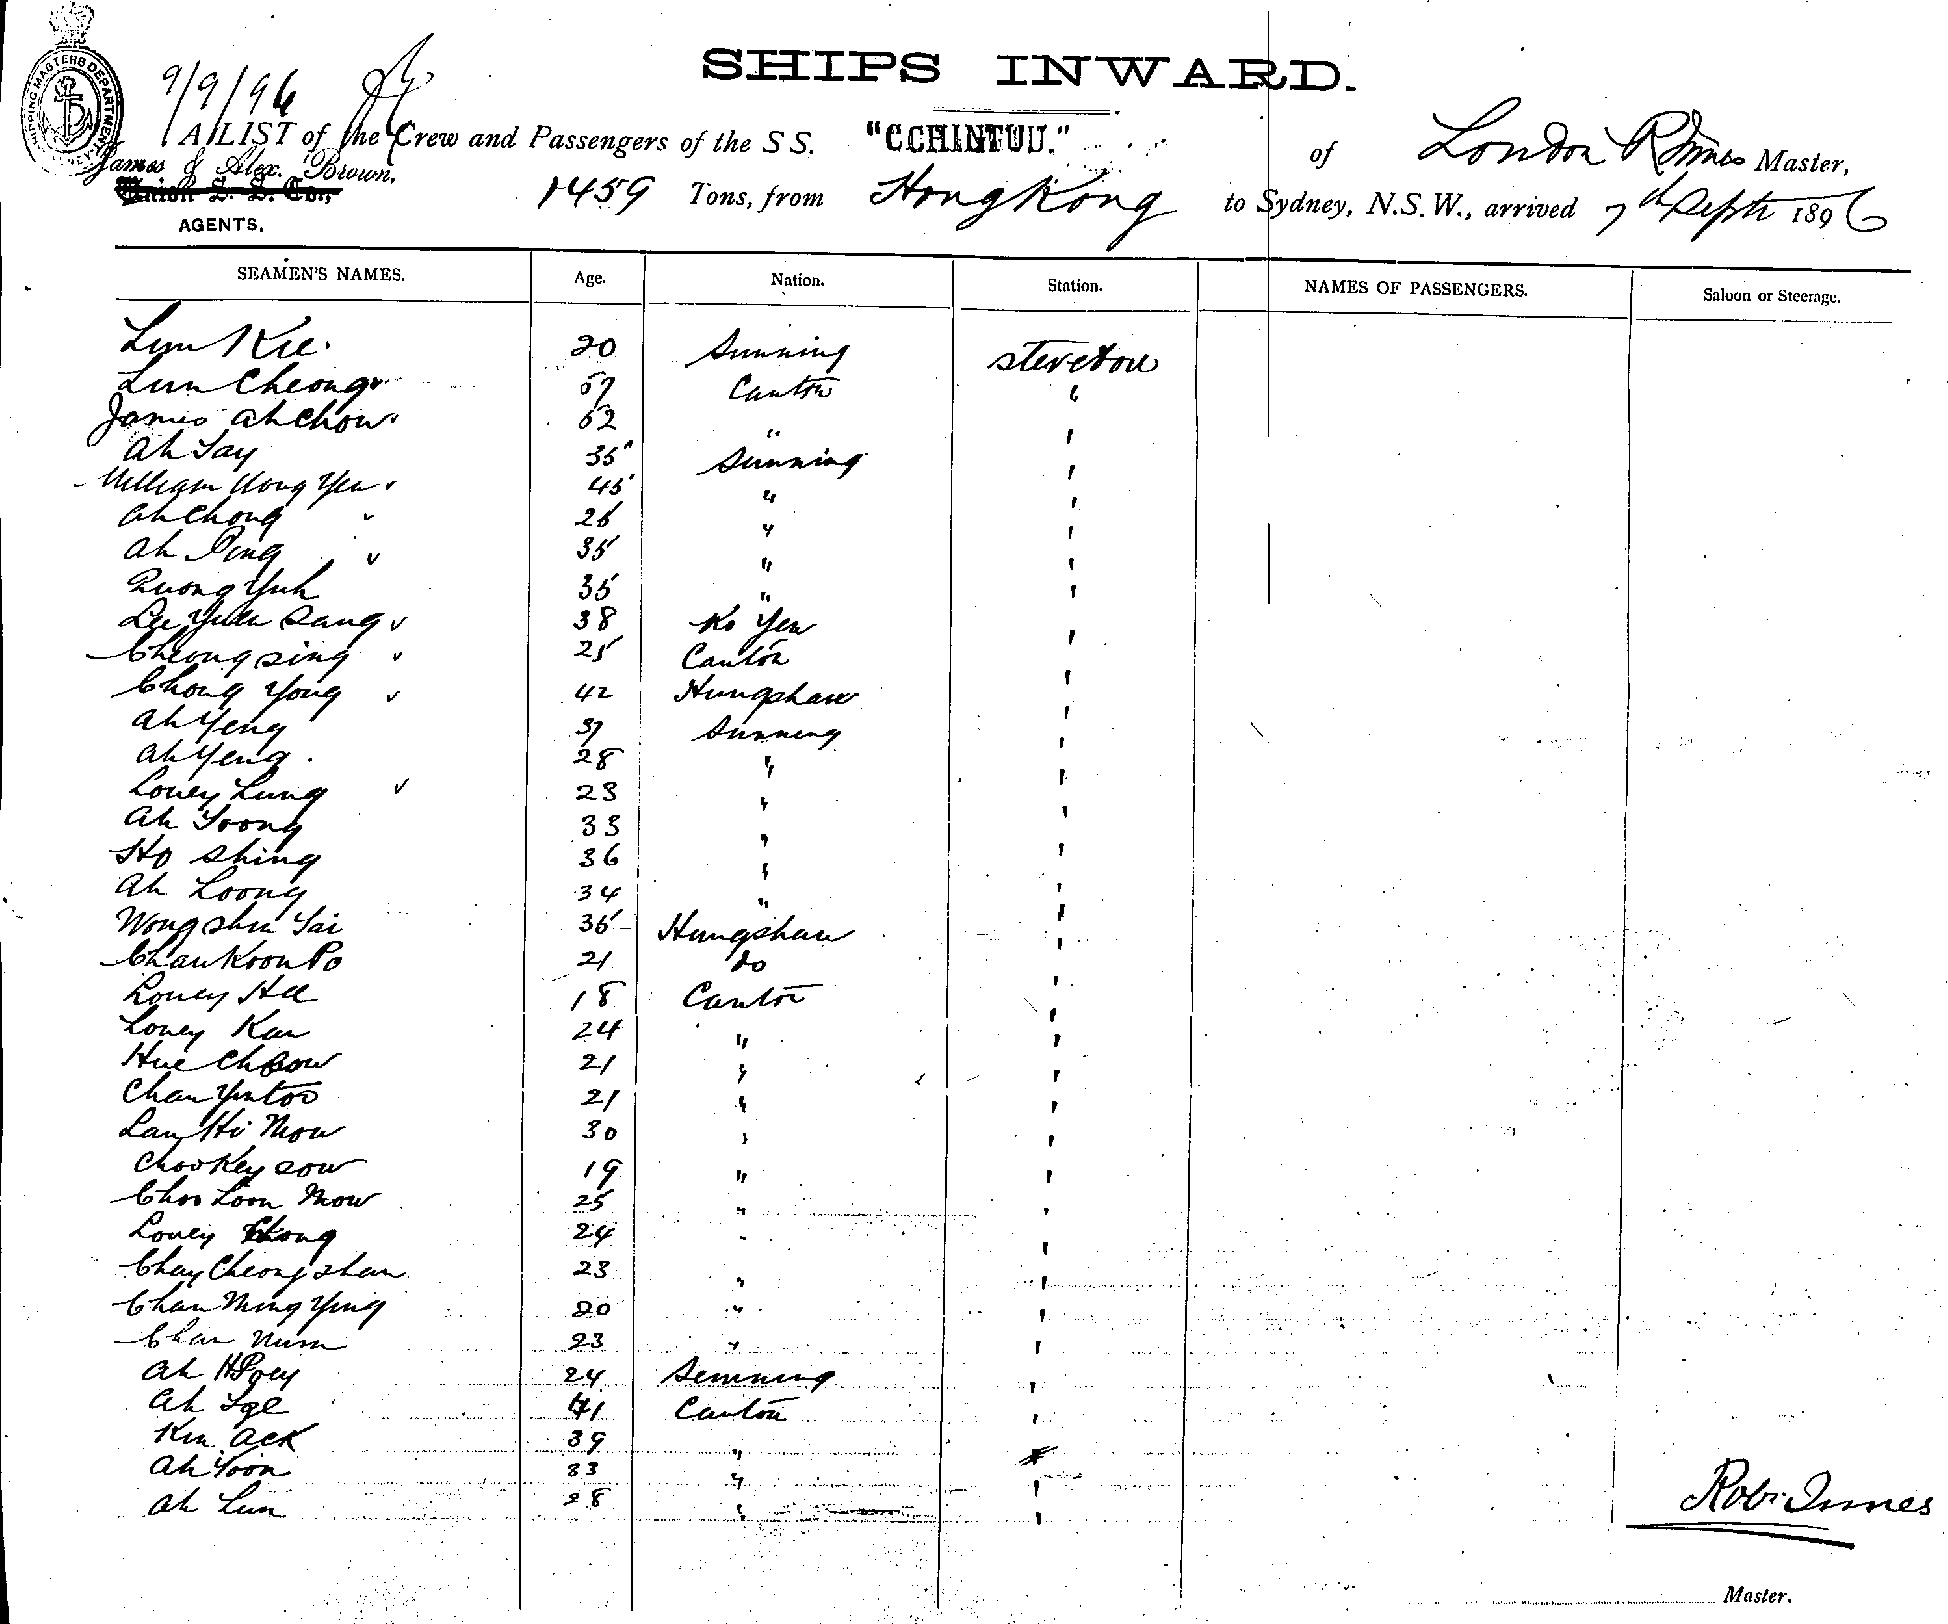 SHIPS INWARD.
9/9/96
A LIST of the Crew and Passengers of the S S. "CCHINTUU." of London R Innes Master,
James & Alex. Brown.
Union S. S. Co.,
AGENTS.
1459 Tons, from Hong Kong to Sydney, N.S.W., arrived 7th Septr 1896
SEAMEN'S NAMES. Age. Nation. Station. NAMES OF PASSENGERS. Saloon or Steerage.
Lum Kee 20 Sunning
Lun Cheong 57 Canton "
James Ah Chow 52 " "
Ah Tay 35 Sunning "
William Hong Yen 45 " "
Ah Chong 26 " "
Ah Ping 35 " "
Quong Yuh 35 " "
Lee Yuen Sang 38 Ko Yen "
Cheong Sing 25 Canton "
Chong Yong 42 Hungshaw "
Ah Yeng 37 Sunning "
Ah Yeng 28 " "
Louey Lung 23 " "
Ah Yoong 33 " "
Ho Shing 36 " "
Ah Loong 34 " "
Wong Shu Tai 35 Hungshaw "
Chan Koon Po 21 do "
Louey Hee 18 Canton "
Louey Kan 24 " "
Hue Chow 21 " "
Chan Yu Too 21 " "
Lau Hi Mow 30 " "
Choo Key Sow 19 " "
Choo Loon Mow 25 " "
Louey Chong 24 " "
Chay Cheong Shan 23 " "
Chan Ming Ying 20 " "
Chan Num 23 " "
Ah Poey 24 Sunning "
Ah 41 Canton "
Kin Ack 39 "
Ah Yoon 33 " "
Ah Lun 28 " "
Robt Innes
Master.